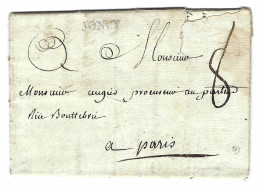 JOIGNY
Monsieur
8
Monsieur augée procureur au parlem.t
Rüe Bouttebrie
a paris